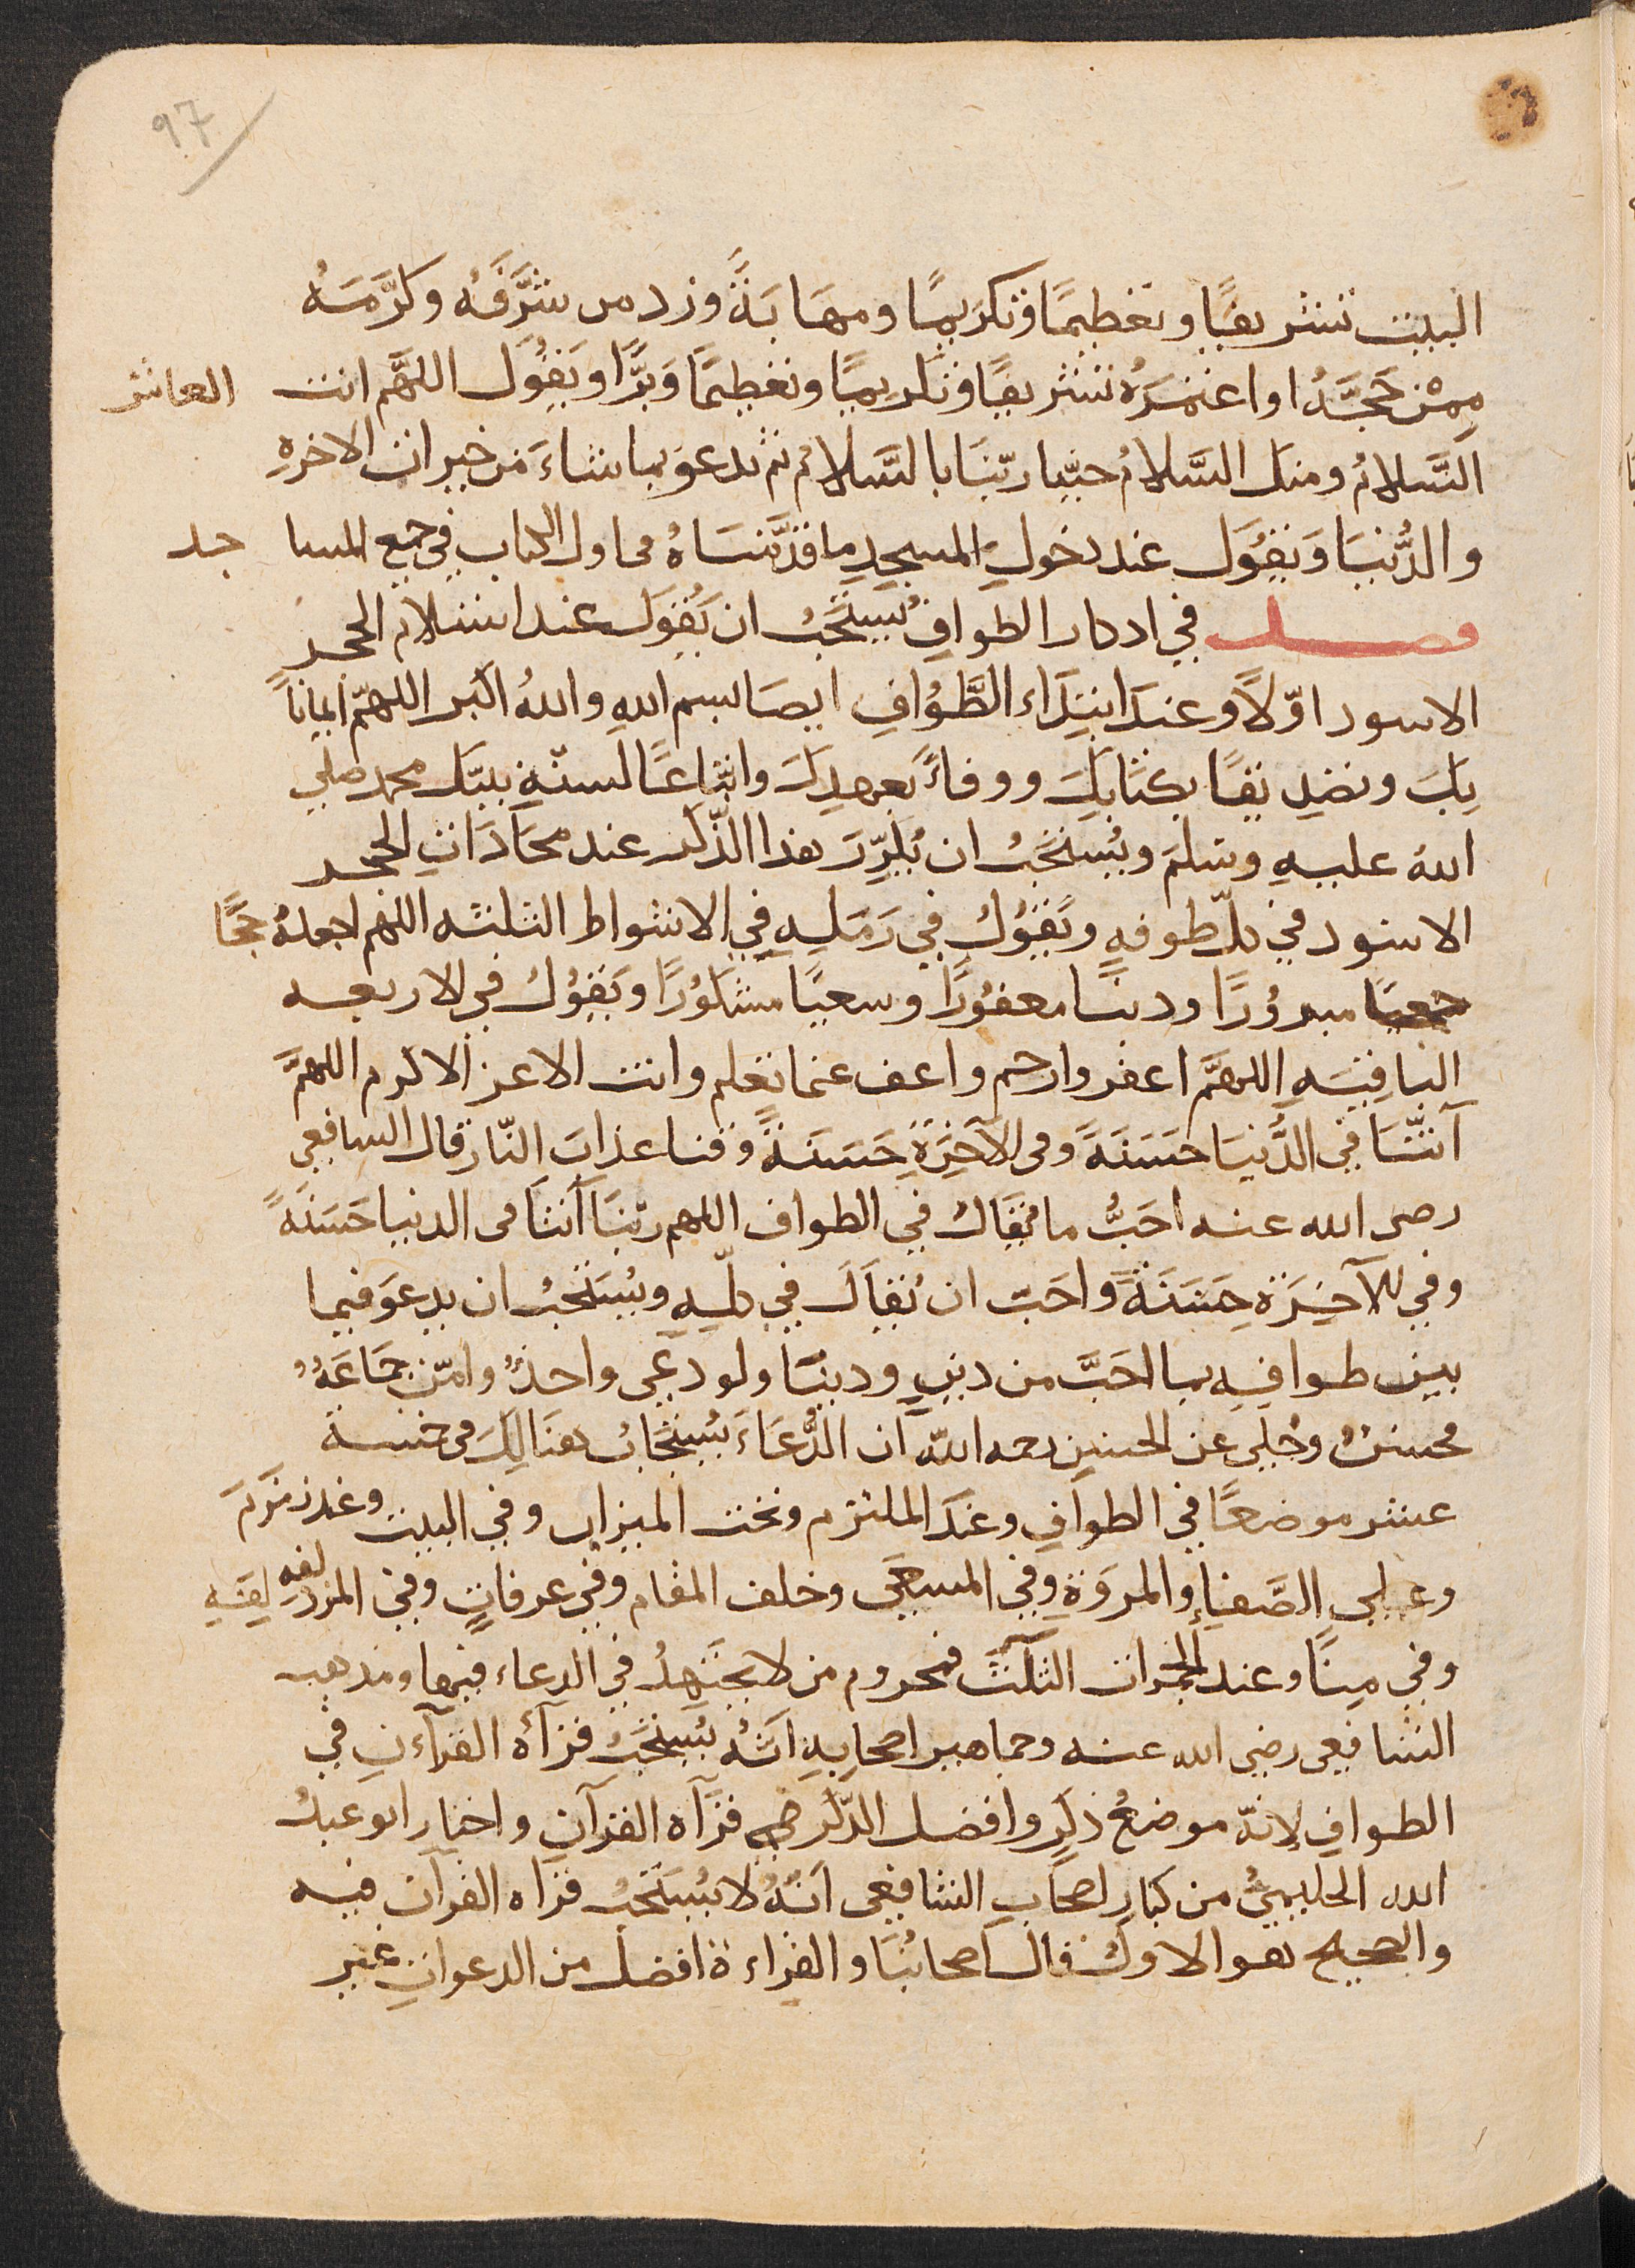 97
البيت تشريفًا وتعظيمًا وتكريمًا ومهابَةً وزد من شرَّفَهُ وكرَّمَهُ
مِمّن حَجَّهُ او اعتمرَهُ تشريفًا وتكريمًا وتعظيمًا وَبرًّا ويَقُول اللهمَّ انت
العاشر
السَّلامُ ومنك السَّلامُ حيّنا ربّنَا بالسَّلامُ ثم يدعو بما شاءَ من خيرات الاخرهِ
والدُّنيَا وَيقُول عند دخولِ المسجدِ ما قدَّمنَاهُ في اول الكتاب في جميع المساجد
فصل في اذكار الطوافِ يُستَحَبُّ ان يَقُولَ عند استلام الحجر
الاسود اوّلاً وعندَ ابتِدَاء الطَّوُافِ ايضا بسم اللهِ واللهُ اكبر اللهمّ ايمانًا
بِكَ وتصدِيقًا بكتَابِكَ ووفاءً بعهدِكَ واتّباعًا لسنّةِ نبيّك محمد صلى
الله عليهِ وسلمَ ويُستحَبُّ ان يُكرِّرَ هذا الذّكر عند محَاذَاتِ الحجر
الاسود في كلّ طوفهٍ ويَقُولُ في رَمَلِهِ في الاشواط الثلثه اللهم اجعلهُ حجًّا
مبرُورًا وذنبًا مغفُورًا وسعيًا مشكَوُرًا ويَقوُلُ في الاربعه
الباقيَهِ اللهمَّ اغفر وارحم واعف عما تعلم وانت الاعز الاكرم اللهمَّ
آتنَا في الدُّنيَا حسَنَةً وفى الآخِرَةِ حَسَنةً وقنا عذابَ النّار قال الشافعى
رضى الله عنه احَبُّ ما يُقَالُ في الطواف اللهم ربّنَا آتنَا فى الدنيا حَسَنَةً
وفي الآخِرَة حَسَنَةً واحَبّ ان يُقَالَ في كلّهِ ويُستَحَبُّ ان يدعوَ فيما
بين طوافِهِ بما احَبَّ من دينٍ ودنيَا ولو دعى واحدٌ وامّن جماعَةٌ
فحسنٌ وحُكي عن الحسنِ رحمه اللّه ان الدُّعَاءَ يُستجَابُ هنَالِكَ في خمسة
عشر موضعًا في الطوافِ وعندَ الملتزم وتحت الميزاب وفي البيت وعند زمزمَ
وعلى الصَّفَاء والمروَةِ وفي المسعَى وخلف المقام وفي عرفاتٍ وفي المزدلفه لِفَةِ
وفي مِنًا وعند الجمرات الثلثَ فمحروم من لا يجتَهِدُ في الدعاء فيها ومذهب
الشافعى رضي الله عنه وجماهير اصحابِهِ انَّهُ يُستحَبُّ قراَه القرآءنِ في
الطوافِ لانهّ موضعُ ذكرٍ وافضل الذّكر قرآه القرآنِ واختار ابو عبدُ
الله الحليميُّ من كبارِ اصحَابِ الشافعى انّهُ لا يُستَحَبُّ قراه القرآن فيه
والصحيح هو الاولُ قال اصحابُنَا والقراءةُ افضل من الدعواتِ غير